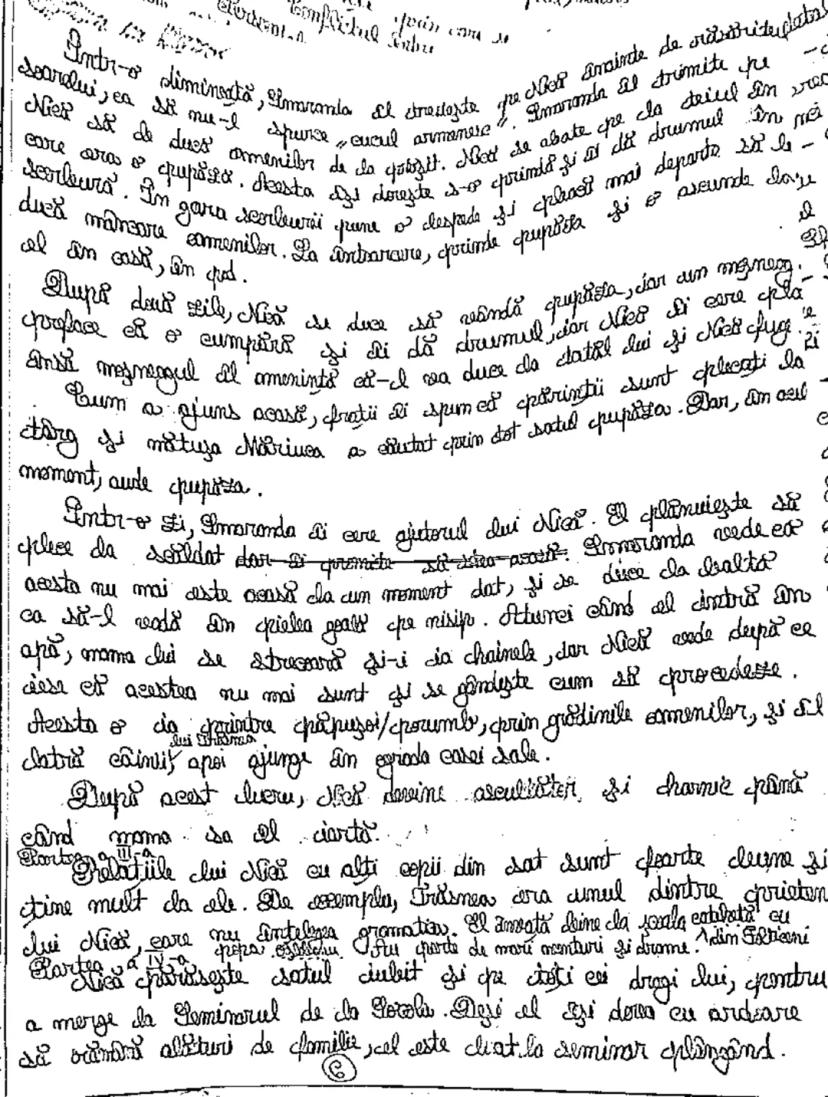 Conflictul
prin care se
Într-o dimineață, Smaranda îl trezește pe Nică înainte de răsăritul
soarelui, ca să nu-l spurce „cucul armenesc”. Smaranda îl trimite pe
Nică să le ducă oamenilor de la prășit. Nică se abate pe la teiul în
care era o pupăză. Acesta își dorește s-o prindă și îi dă drumul în
scorbură. În gura scorburii pune o lespede și pleacă mai departe să le
ducă mâncare oamenilor. La întoarcere, prinde pupăza și o ascunde
el în casă, în pod.
După două zile, Nică se duce să vândă pupăza, iar un mezneag.
preface că o cumpără și îi dă drumul, iar Nică îi cere
însă mezneagul îl amenință că-l va duce la tatăl lui și Nică fuge.
Cum a ajuns acasă, frații îi spun că părinții sunt plecați la
târg și mătușa Măriuca a căutat prin tot satul pupăza. Dar, în acel
moment, aude pupăza.
Într-o zi, Smaranda îi cere ajutorul lui Nică. El plănuiește să
plece la scăldat dar îi promite să stea acasă. Smaranda vede că
acesta nu mai este acasă la un moment dat, și se duce la baltă
ca să-l vadă în pielea goală pe nisip. Atunci când el intră în
apă, mama lui se strecoară și-i ia hainele, dar Nică vede după ce
iese că acestea nu mai sunt și se gândește cum să procedeze.
Acesta o ia printre păpușoi/porumb, prin grădinile oamenilor, și îl
latră câinii lui Trăsnea, apoi ajunge în ograda casei sale.
După acest lucru, Nică devine ascultător și harnic până
când mama sa îl iartă.
Partea a III-a
Relațiile lui Nică cu alți copii din sat sunt foarte bune și
ține mult la ele. De exemplu, Trăsnea era unul dintre prieten
lui Nică, care nu înțelegea gramatica. El învață bine la școala catihetă cu
popa Au parte de mari și drame. din Fălticeni
Partea a IV-a
Nică părăsește satul iubit și pe toți cei dragi lui, pentru
a merge la Seminarul de la Socola. Deși el își dorea cu ardoare
să rămână alături de familie, el este luat la seminar plângând.
6